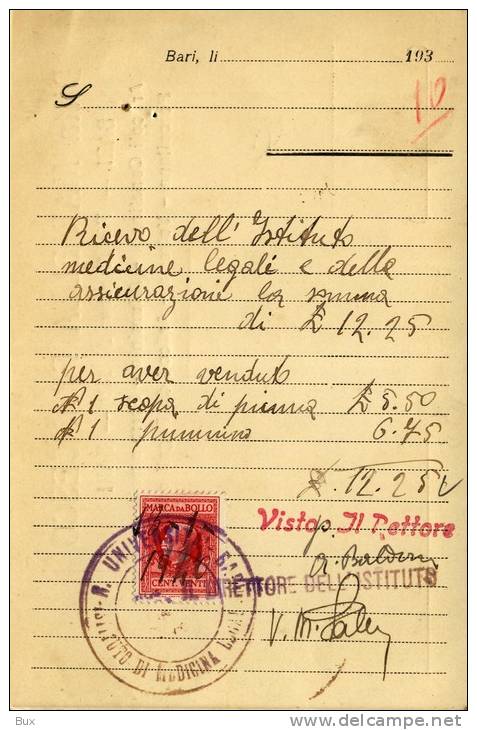 Bari, li 193
S
10
Ricevo dell' Istituto
medicine legali e della
assicurazione la somma
di £ 12.25
per aver venduto
N 1 scopa di piuma £ 5.50
N 1 piumino 6.75
12.25
MARCA DA BOLLO
CENT. VENTI
Visto, Il Rettore
p. IL DIRETTORE DELL'ISTITUTO
R. UNIVERSITÀ BARI
ISTITUTO DI MEDICINA LEGALE
Bux
www.delcampe.net